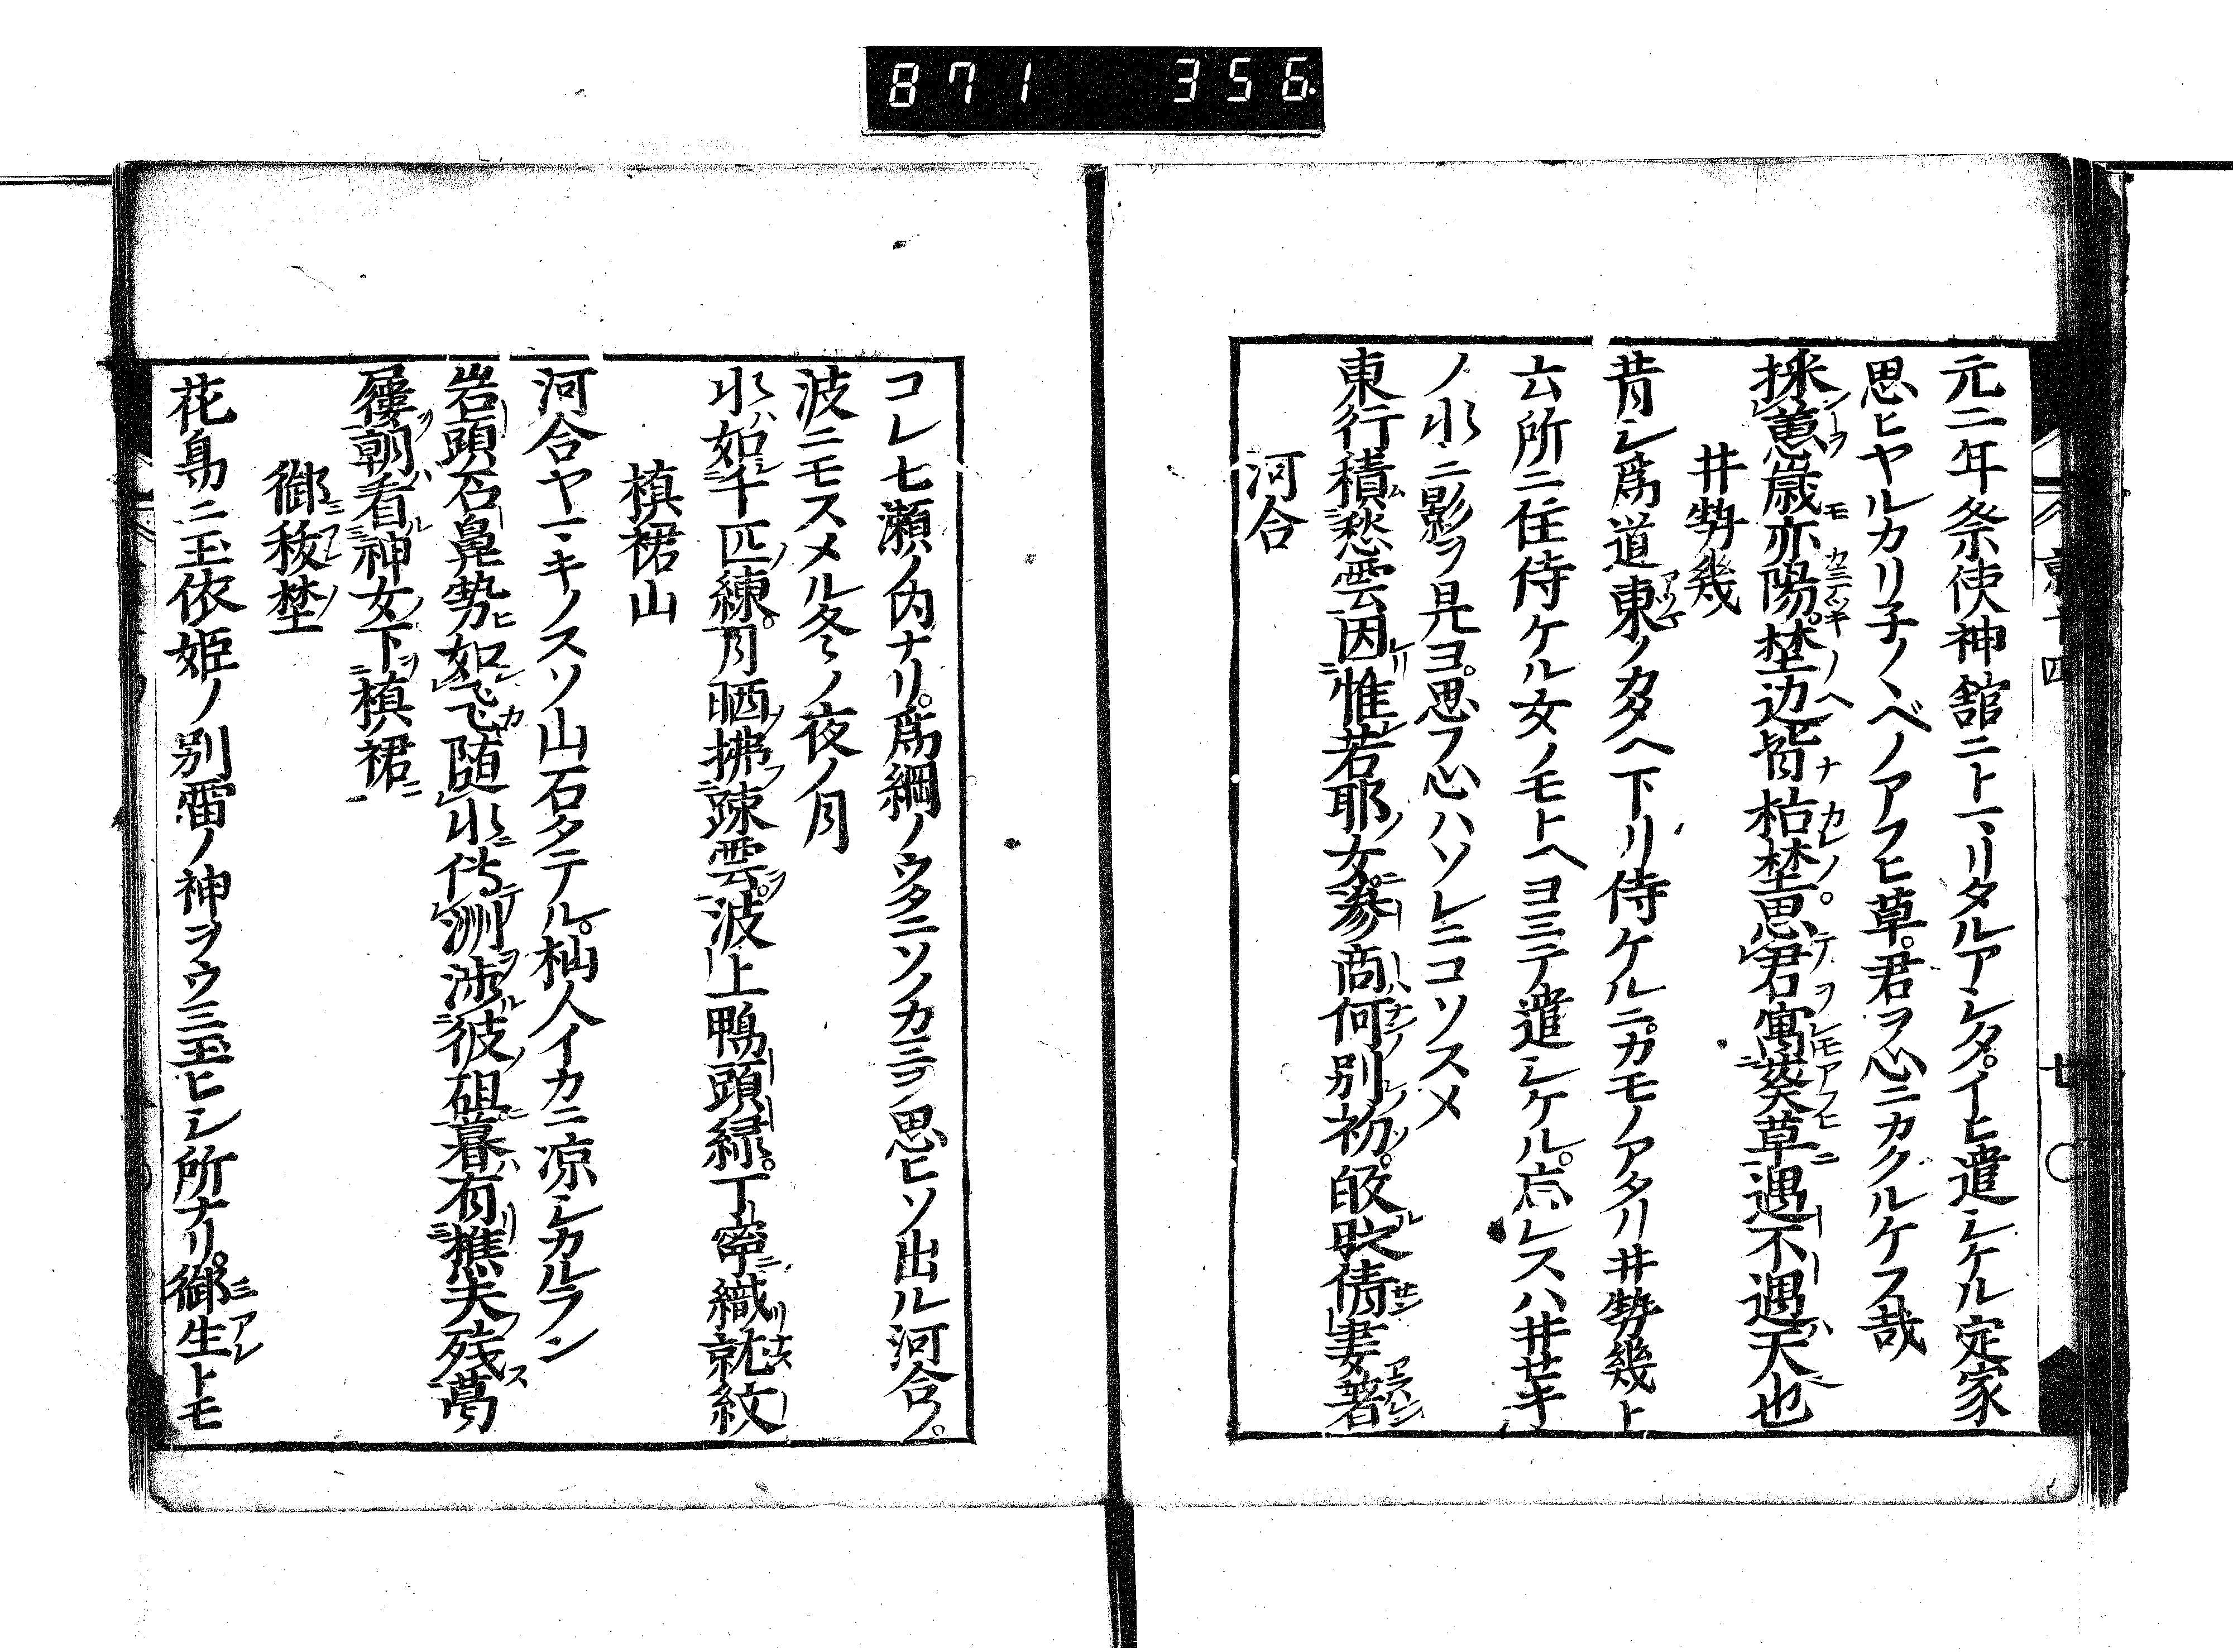 871 356
元二年祭使神舘ニトヽリタルアシタ。イヒ遣シケル定家
思ヒヤルカリ子ノヽベノアフヒ草。君ヲ心ニカクルケフ哉
採蕙歳亦陽。埜辺皆枯埜。思君寓葵草遇不遇天也
井㔟幾
昔シ為道東ノカタヘ下リ侍ケルニ。カモノアタリ井㔟幾ト
云所ニ住侍ケル女ノモトヘヨミテ遣シケル。忘レスハ井セキ
ノ水ニ影ヲ見ヨ。思フ心ハソレニコソスメ
東行積愁雲因惟若耶女。参商何別初。皎
倩妻著
河合
コレ七瀬ノ内ナリ。為綱ノウタニソノカミヲ思ヒソ出ル河合ノ。
波ニモスメル冬ノ夜ノ月
水如千匹練。月晒拂疎雲。波上鴨頭緑。丁寧織就紋
槙裙山
河合ヤマキノスソ山石タテル。杣人イカニ凉シカルラン
岩頭石鼻㔟如飞随水传洲渉彼砠暮有樵夫残蔓
屨朝看神女下槙裙
御秡埜
花鳥ニ玉依姫ノ別雷ノ神ヲウミ玉ヒシ所ナリ。御生トモ